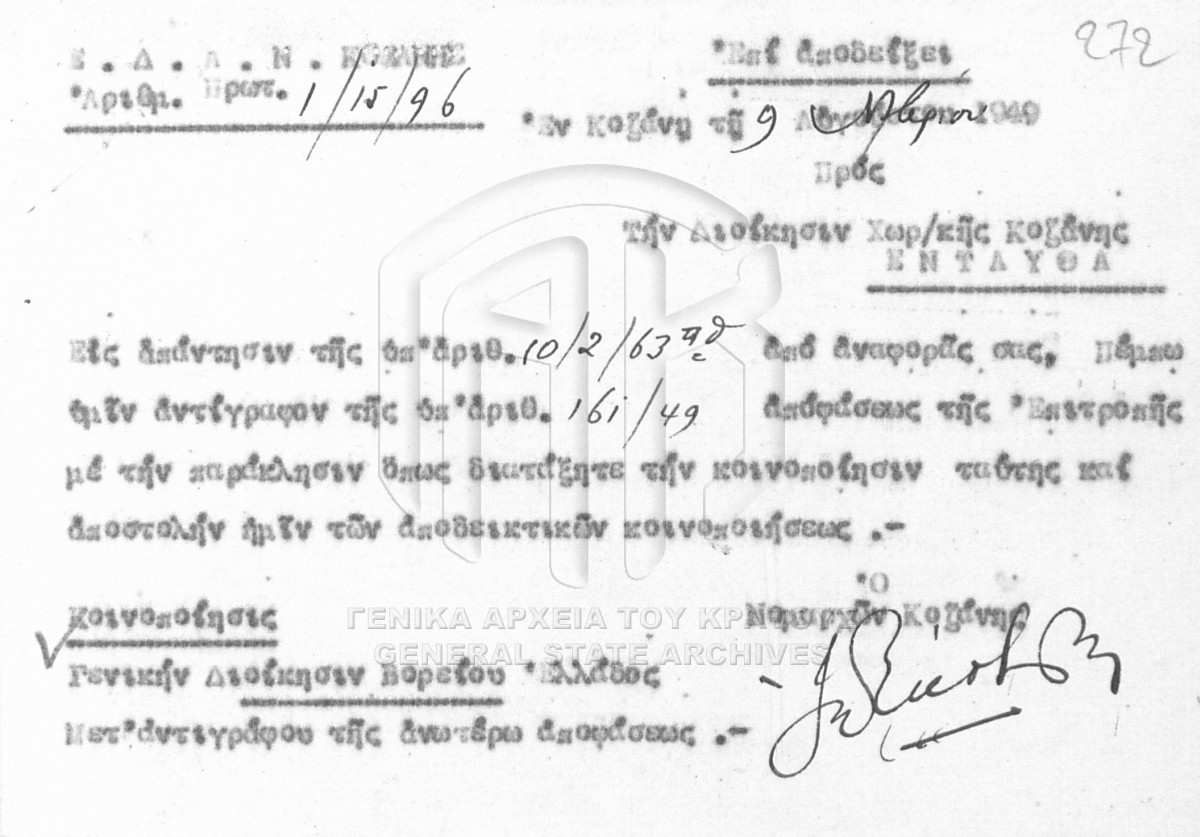 272
Ε . Δ . Α . Ν . ΚΟΖΑΝΗΣ
Ἀριθμ. Πρωτ. 1/15/96
Ἐπί ἀποδείξει
Ἐν Κοζάνῃ τῇ 9 1949
Πρός
Τήν Διοίκησιν Χωρ/κῆς Κοζάνης
Ε Ν Τ Α Υ Θ Α
Εἰς ἀπάντησιν τῆς ὑπ'ἀριθ. 10/2/63 ἀπό ἀναφορᾶς σας, Πέμπω
ὑμῖν ἀντίγραφον τῆς ὑπ'ἀριθ. 161/49 ἀποφάσεως τῆς Ἐπιτροπῆς
μέ τήν παράκλησιν ὅπως διατάξητε τήν κοινοποίησιν ταύτης καί
ἀποστολήν ἡμῖν τῶν ἀποδεικτικῶν κοινοποιήσεως .-
Ὁ
Νομαρχῶν Κοζάνης
Κοινοποίησις
Γενικήν Διοίκησιν Βορείου Ἑλλάδος
Μετ'ἀντιγράφου τῆς ἀνωτέρω ἀποφάσεως .-
ΓΕΝΙΚΑ ΑΡΧΕΙΑ ΤΟΥ ΚΡΑ
GENERAL STATE ARCHIVES